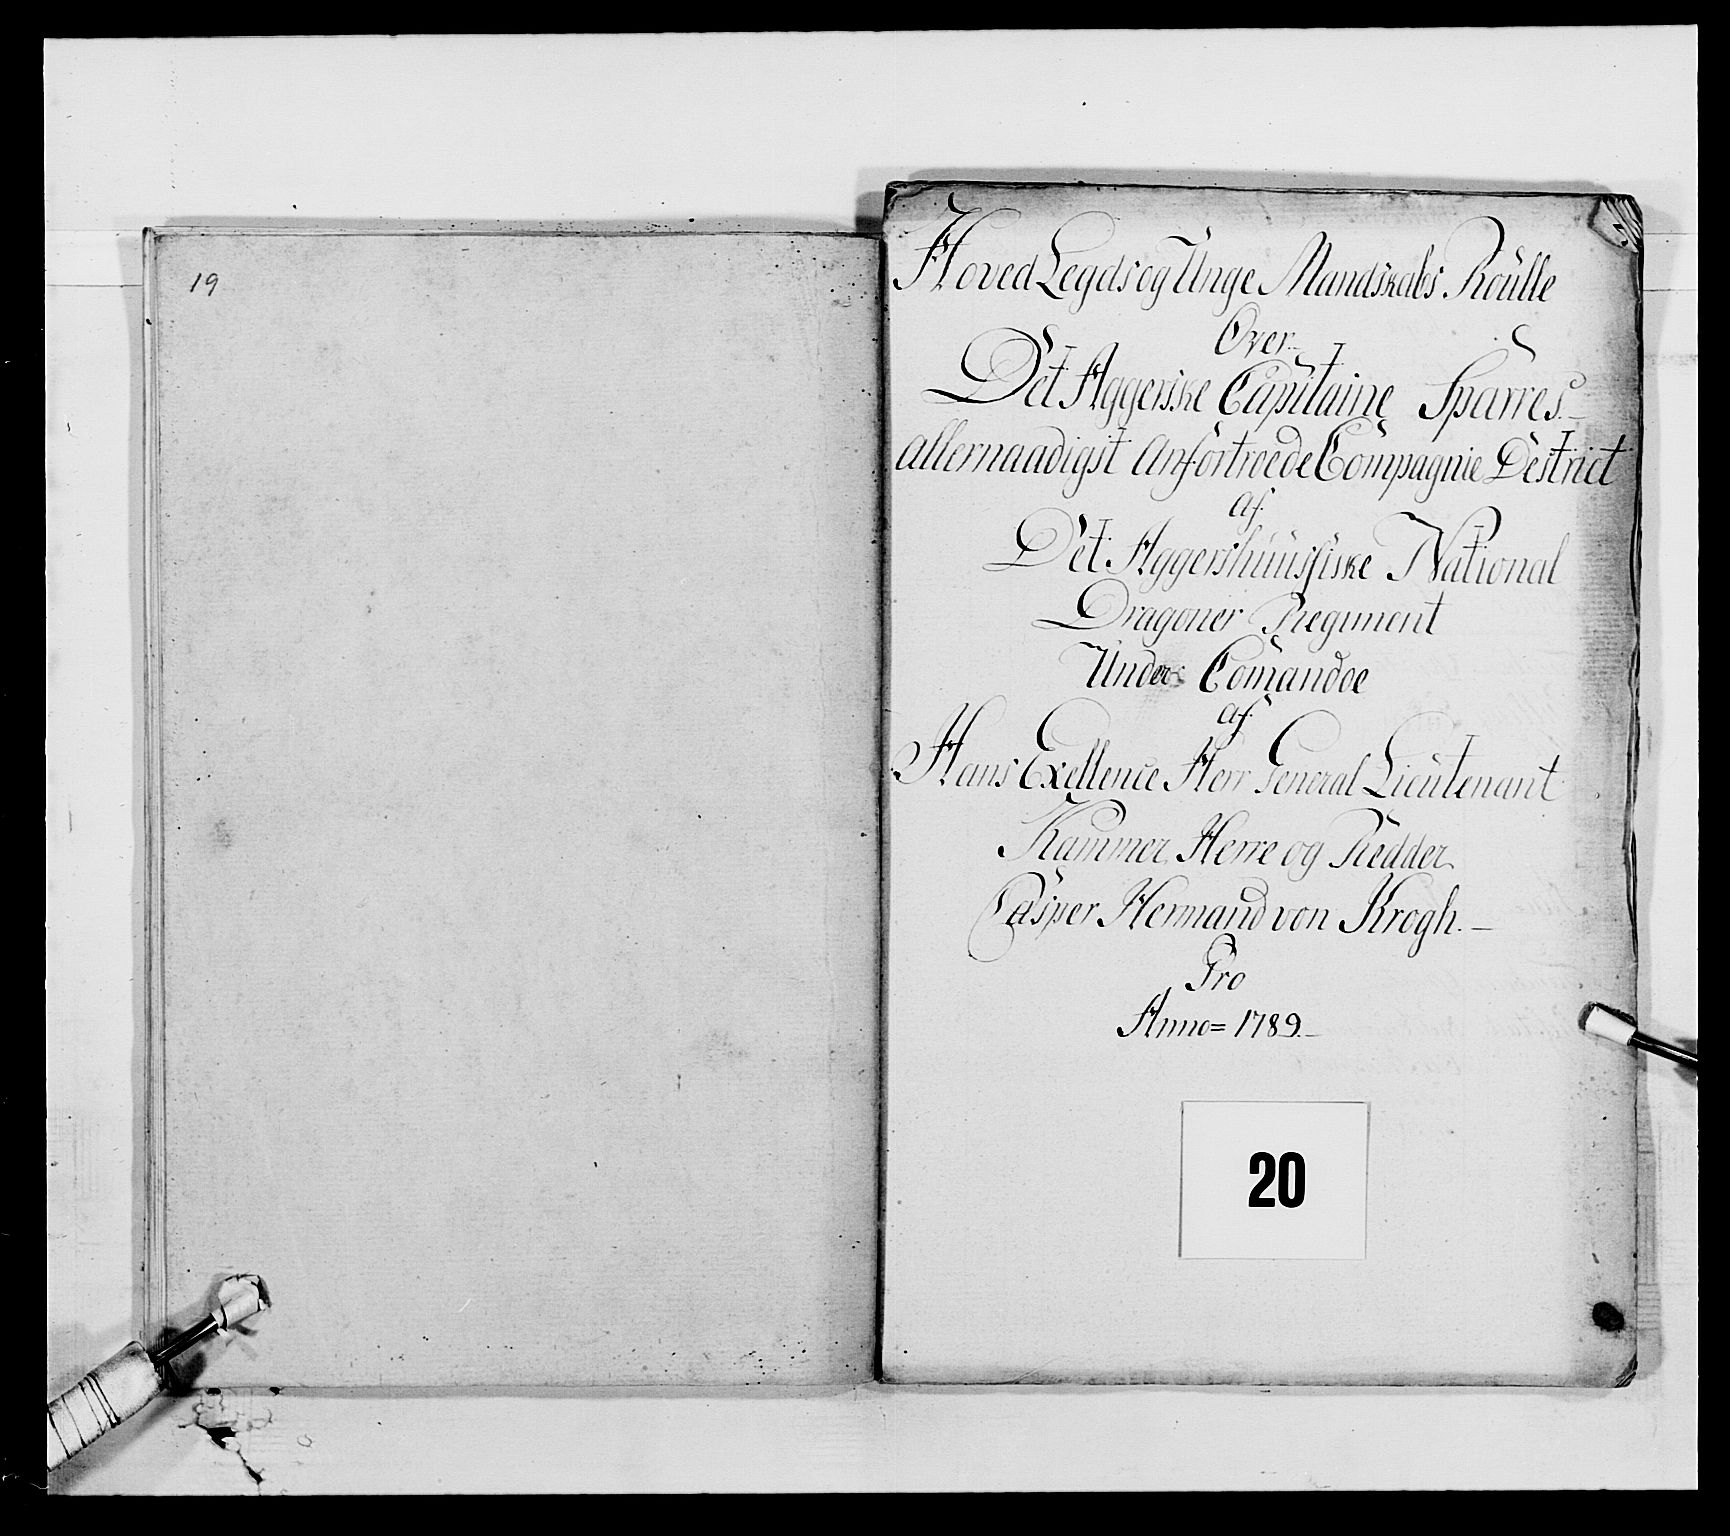 19
Hoved Legds og Unge Mandskabs Roulle
Over
Det Aggerske Capitaine Sparres
allernaadigst Anfortroede Compagnie District
af
Det Aggershuusiske National
Dragoner Regiment
Under Comandoe
af
Hans Exellence Herr General Lieutenant
Kammer Herre og Redder
Casper Hermand von Krogh.
Pro
Anno = 1789.
20